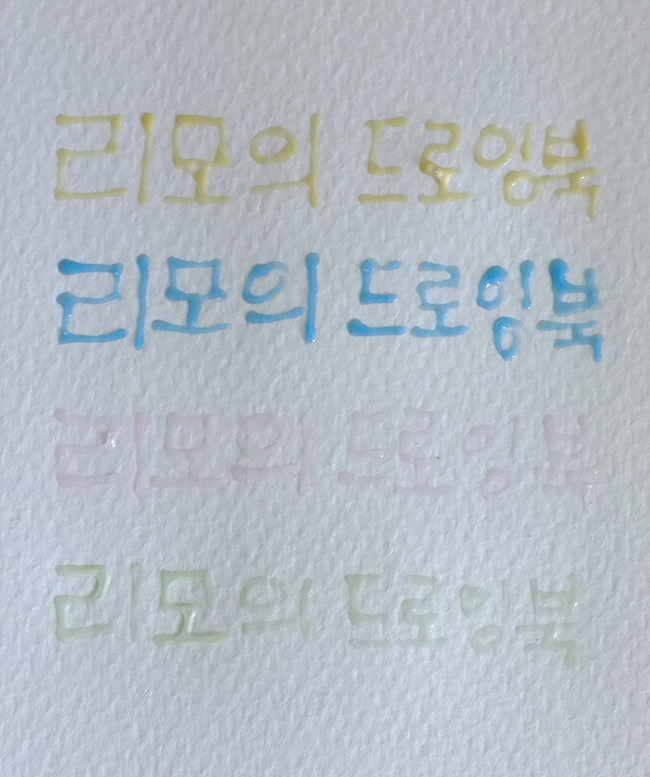 리모의 드로잉북
리모의 드로잉북
리모의 드로잉북
리모의 드로잉북